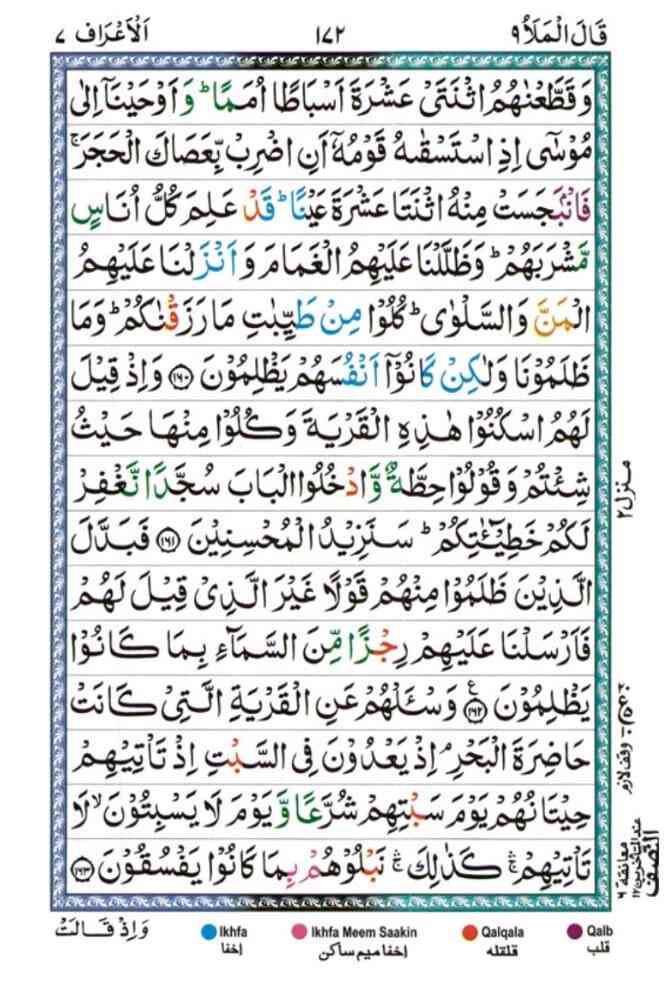 قَالَ الْمَلَاُ ۹
۱۷۲
اَلْاَعْرَاف ۷
وَ قَطَّعْنٰهُمُ اثْنَتَیْ عَشْرَةَ اَسْبَاطًا اُمَمًاؕ وَ اَوْحَیْنَاۤ اِلٰی
مُوْسٰۤی اِذِ اسْتَسْقٰىهُ قَوْمُهٗۤ اَنِ اضْرِبْ بِّعَصَاكَ الْحَجَرَۚ
فَانْۢبَجَسَتْ مِنْهُ اثْنَتَا عَشْرَةَ عَیْنًاؕ قَدْ عَلِمَ كُلُّ اُنَاسٍ
مَّشْرَبَهُمْؕ وَ ظَلَّلْنَا عَلَیْهِمُ الْغَمَامَ وَ اَنْزَلْنَا عَلَیْهِمُ
الْمَنَّ وَ السَّلْوٰیؕ كُلُوْا مِنْ طَیِّبٰتِ مَا رَزَقْنٰكُمْؕ وَ مَا
ظَلَمُوْنَا وَ لٰكِنْ كَانُوْۤا اَنْفُسَهُمْ یَظْلِمُوْنَ ۝۱۶۰ وَ اِذْ قِیْلَ
لَهُمُ اسْكُنُوْا هٰذِهِ الْقَرْیَةَ وَ كُلُوْا مِنْهَا حَیْثُ
شِئْتُمْ وَ قُوْلُوْا حِطَّةٌ وَّ ادْخُلُوا الْبَابَ سُجَّدًا نَّغْفِرْ
لَكُمْ خَطِیْٓـٰٔتِكُمْؕ سَنَزِیْدُ الْمُحْسِنِیْنَ ۝۱۶۱ فَبَدَّلَ
الَّذِیْنَ ظَلَمُوْا مِنْهُمْ قَوْلًا غَیْرَ الَّذِیْ قِیْلَ لَهُمْ
فَاَرْسَلْنَا عَلَیْهِمْ رِجْزًا مِّنَ السَّمَآءِ بِمَا كَانُوْا
یَظْلِمُوْنَ ۝۱۶۲ ع وَ سْـَٔلْهُمْ عَنِ الْقَرْیَةِ الَّتِیْ كَانَتْ
حَاضِرَةَ الْبَحْرِۘ اِذْ یَعْدُوْنَ فِی السَّبْتِ اِذْ تَاْتِیْهِمْ
حِیْتَانُهُمْ یَوْمَ سَبْتِهِمْ شُرَّعًا وَّ یَوْمَ لَا یَسْبِتُوْنَۙ لَا
تَاْتِیْهِمْۛۚ كَذٰلِكَۛۚ نَبْلُوْهُمْ بِمَا كَانُوْا یَفْسُقُوْنَ ۝۱۶۳
منزل ۲
وقف لازم
معانقة ۶
عند المتاخرین ۱۲
النصف
وَ اِذْ قَالَتْ
Ikhfa
اخفا
Ikhfa Meem Saakin
اخفا میم ساکن
Qalqala
قلقله
Qalb
قلب